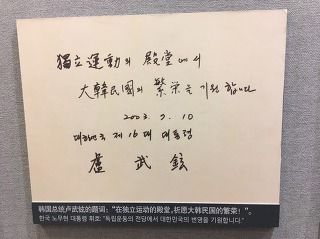 獨立運動의 殿堂에서
大韓民國의 繁栄을 기원합니다
2003. 7. 10
대한민국 제16대 대통령
盧 武 鉉
韩国总统卢武铉的题词：“在独立运动的殿堂，祈愿大韩民国的繁荣！”。
한국 노무현 대통령 휘호: “독립운동의 전당에서 대한민국의 번영을 기원합니다.”